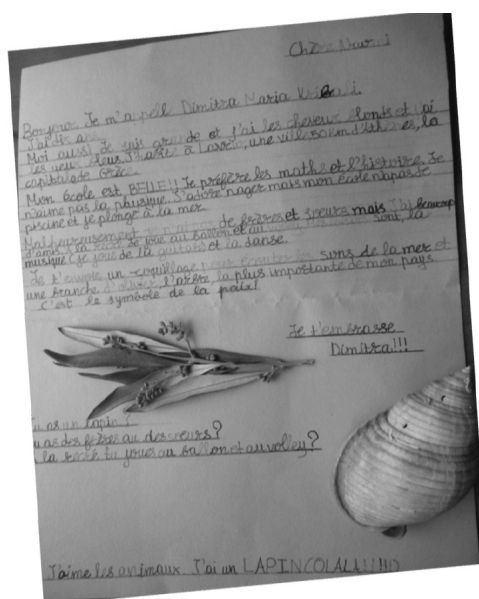 Chère Naomi
Bonjour Je m'apell Dimitra Maria
J'ai dix ans.
Moi aussi je suis grande et j'ai les cheveux blonds et j'ai
les yeux bleus. J'habite à une ville 50km d'Athènes, la
capitale de Grèce.
Mon école est BELLE!! Je préfère les maths et l'histoire. Je
n'aime pas la physique. J'adore nager mais mon école n'a pas de
piscine et je plonge à la mer.
Malheureusement je n'ai de frères et soeurs mais j'ai beaucoup
d'amis. je joue au ballon et au sont, la
musique (je joue de la guitare) et la danse.
Je t'envoie un coquillage pour écouter les sons de la mer et
une branche d'olivier l'arbre la plus importante de mon pays
C'est le symbole de la paix!
Je t'embrasse
Dimitra!!!
as un lapin?
as des frères au des soeurs?
la tu joues au ballon et au volley?
J'aime les animaux. J'ai un LAPIN